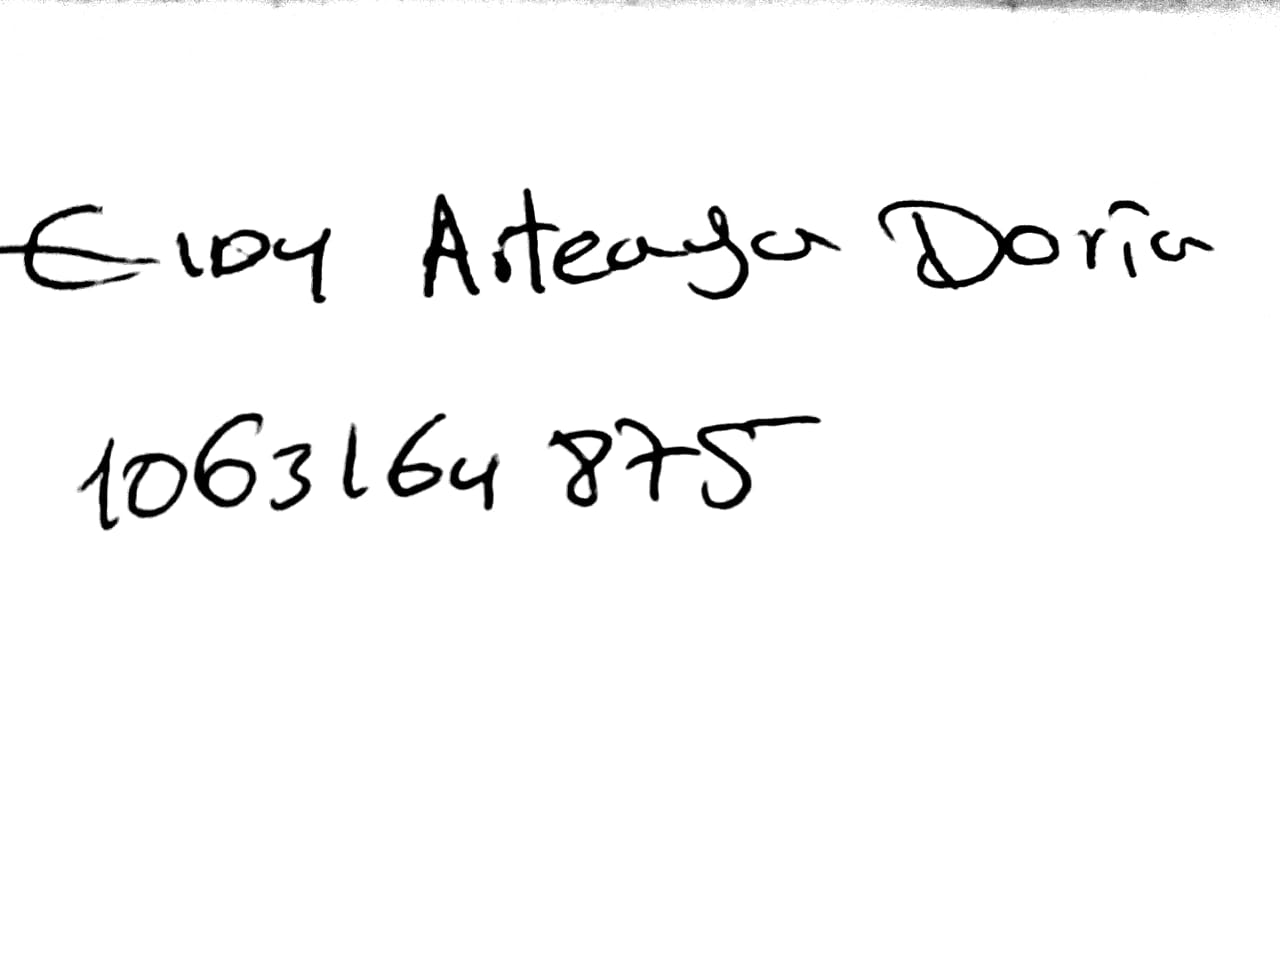 Eloy Arteaga Doria
1063164875